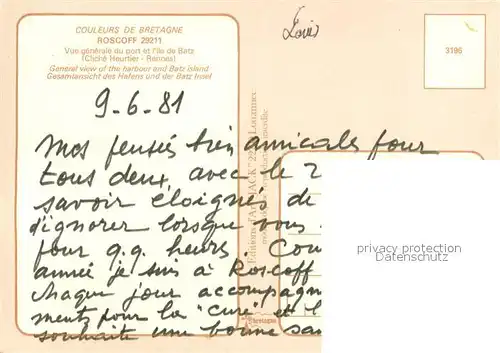 COULEURS DE BRETAGNE
ROSCOFF 29211
Vue générale du port et l'île de Batz
(Cliché Heurtier - Rennes)
General view of the harbour and Batz island
Gesamtansicht des Hafens und der Batz Insel
Louis
3196
9-6-81
Mes pensées bien amicales pour
tous deux, avec le
savoir éloignés de
d'ignorer lorsque vous
pour q.q. heures.
année je suis à Roscoff
chaque jour
ments pour la "cure" et
souhaite une bonne
Editions d'Art "JACK"
privacy protection
Datenschutz